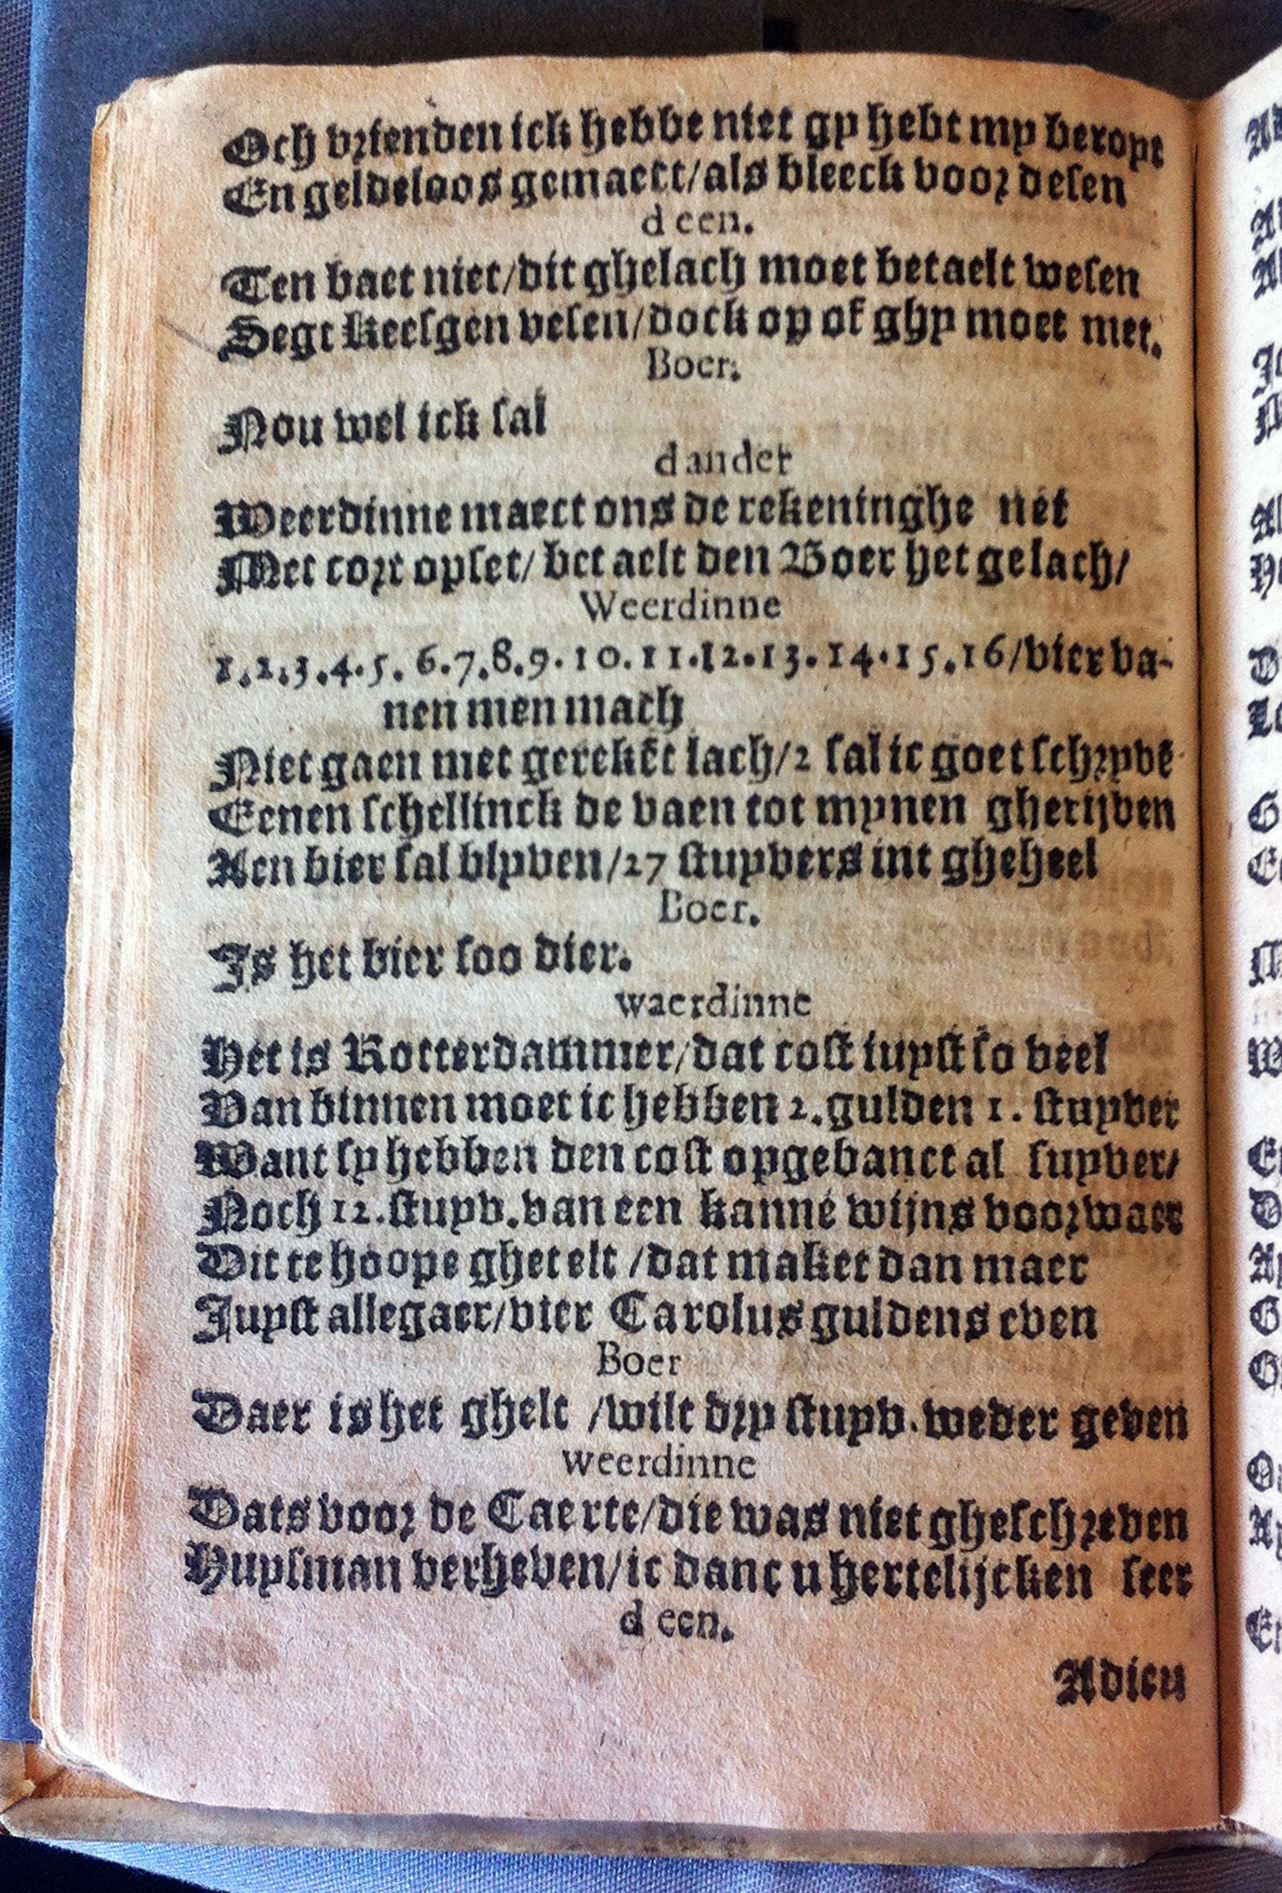 Och vrienden ick hebbe niet gy hebt my beropt
En geldeloos gemaect/als bleeck voor desen
d een.
Ten baet niet/dit ghelach moet betaelt wesen
Segt Keesgen vesen/dock op of ghy moet met.
Boer.
Nou wel ick sal
d ander
Weerdinne maect ons de rekeninghe net
Met cort opset/betaelt den Boer het gelach/
Weerdinne
1.2.3.4.5.6.7.8.9.10.11.12.13.14.15.16/vier va-
nen men mach
Niet gaen met gerekẽt lach/2 sal ic goet schryvẽ
Eenen schellinck de vaen tot mynen gherijven
Aen bier sal blyven/27 stuyvers int gheheel
Boer.
Is het bier soo dier.
waerdinne
Het is Rotterdammer/dat cost iuyst so veel
Van binnen moet ic hebben 2.gulden 1. stuyver
Want sy hebben den cost opgebanct al suyver/
Noch 12.stuyv.van een kanne wijns voorwaer
Dit te hoope ghetelt /dat maket dan maer
Juyst allegaer/vier Carolus guldens even
Boer
Daer is het ghelt /wilt dry stuyv.weder geven
weerdinne
Dats voor de Caerte/die was niet gheschreven
Huysman verheven/ic danc u hertelijcken seer
d een.
Adieu